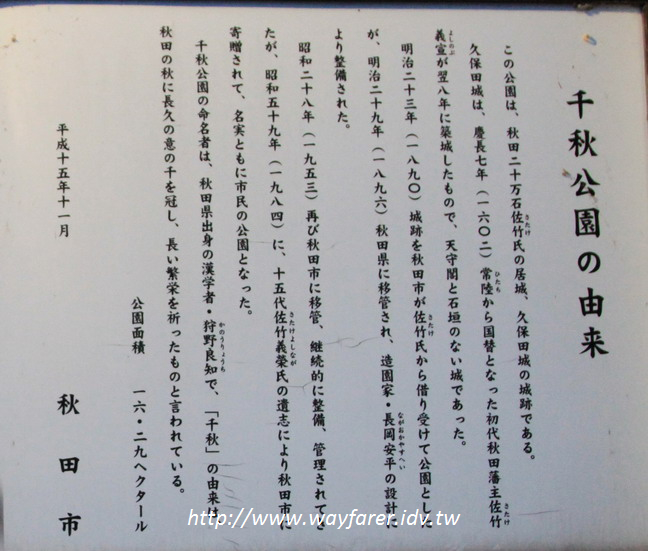 千秋公園の由来
この公園は、秋田二十万石佐竹氏の居城、久保田城の城跡である。
久保田城は、慶長七年（一六〇二）常陸から国替となった初代秋田藩主佐竹
義宣が翌八年に築城したもので、天守閣と石垣のない城であった。
明治二十三年（一八九〇）城跡を秋田市が佐竹氏から借り受けて公園とした
が、明治二十九年（一八九六）秋田県に移管され、造園家・長岡安平の設計に
より整備された。
昭和二十八年（一九五三）再び秋田市に移管、継続的に整備、管理されてき
たが、昭和五十九年（一九八四）に、十五代佐竹義榮氏の遺志により秋田市に
寄贈されて、名実ともに市民の公園となった。
千秋公園の命名者は、秋田県出身の漢学者・狩野良知で、「千秋」の由来は、
秋田の秋に長久の意の千を冠し、長い繁栄を祈ったものと言われている。
公園面積　一六・二九ヘクタール
平成十五年十一月
秋田市
http://www.wayfarer.idv.tw